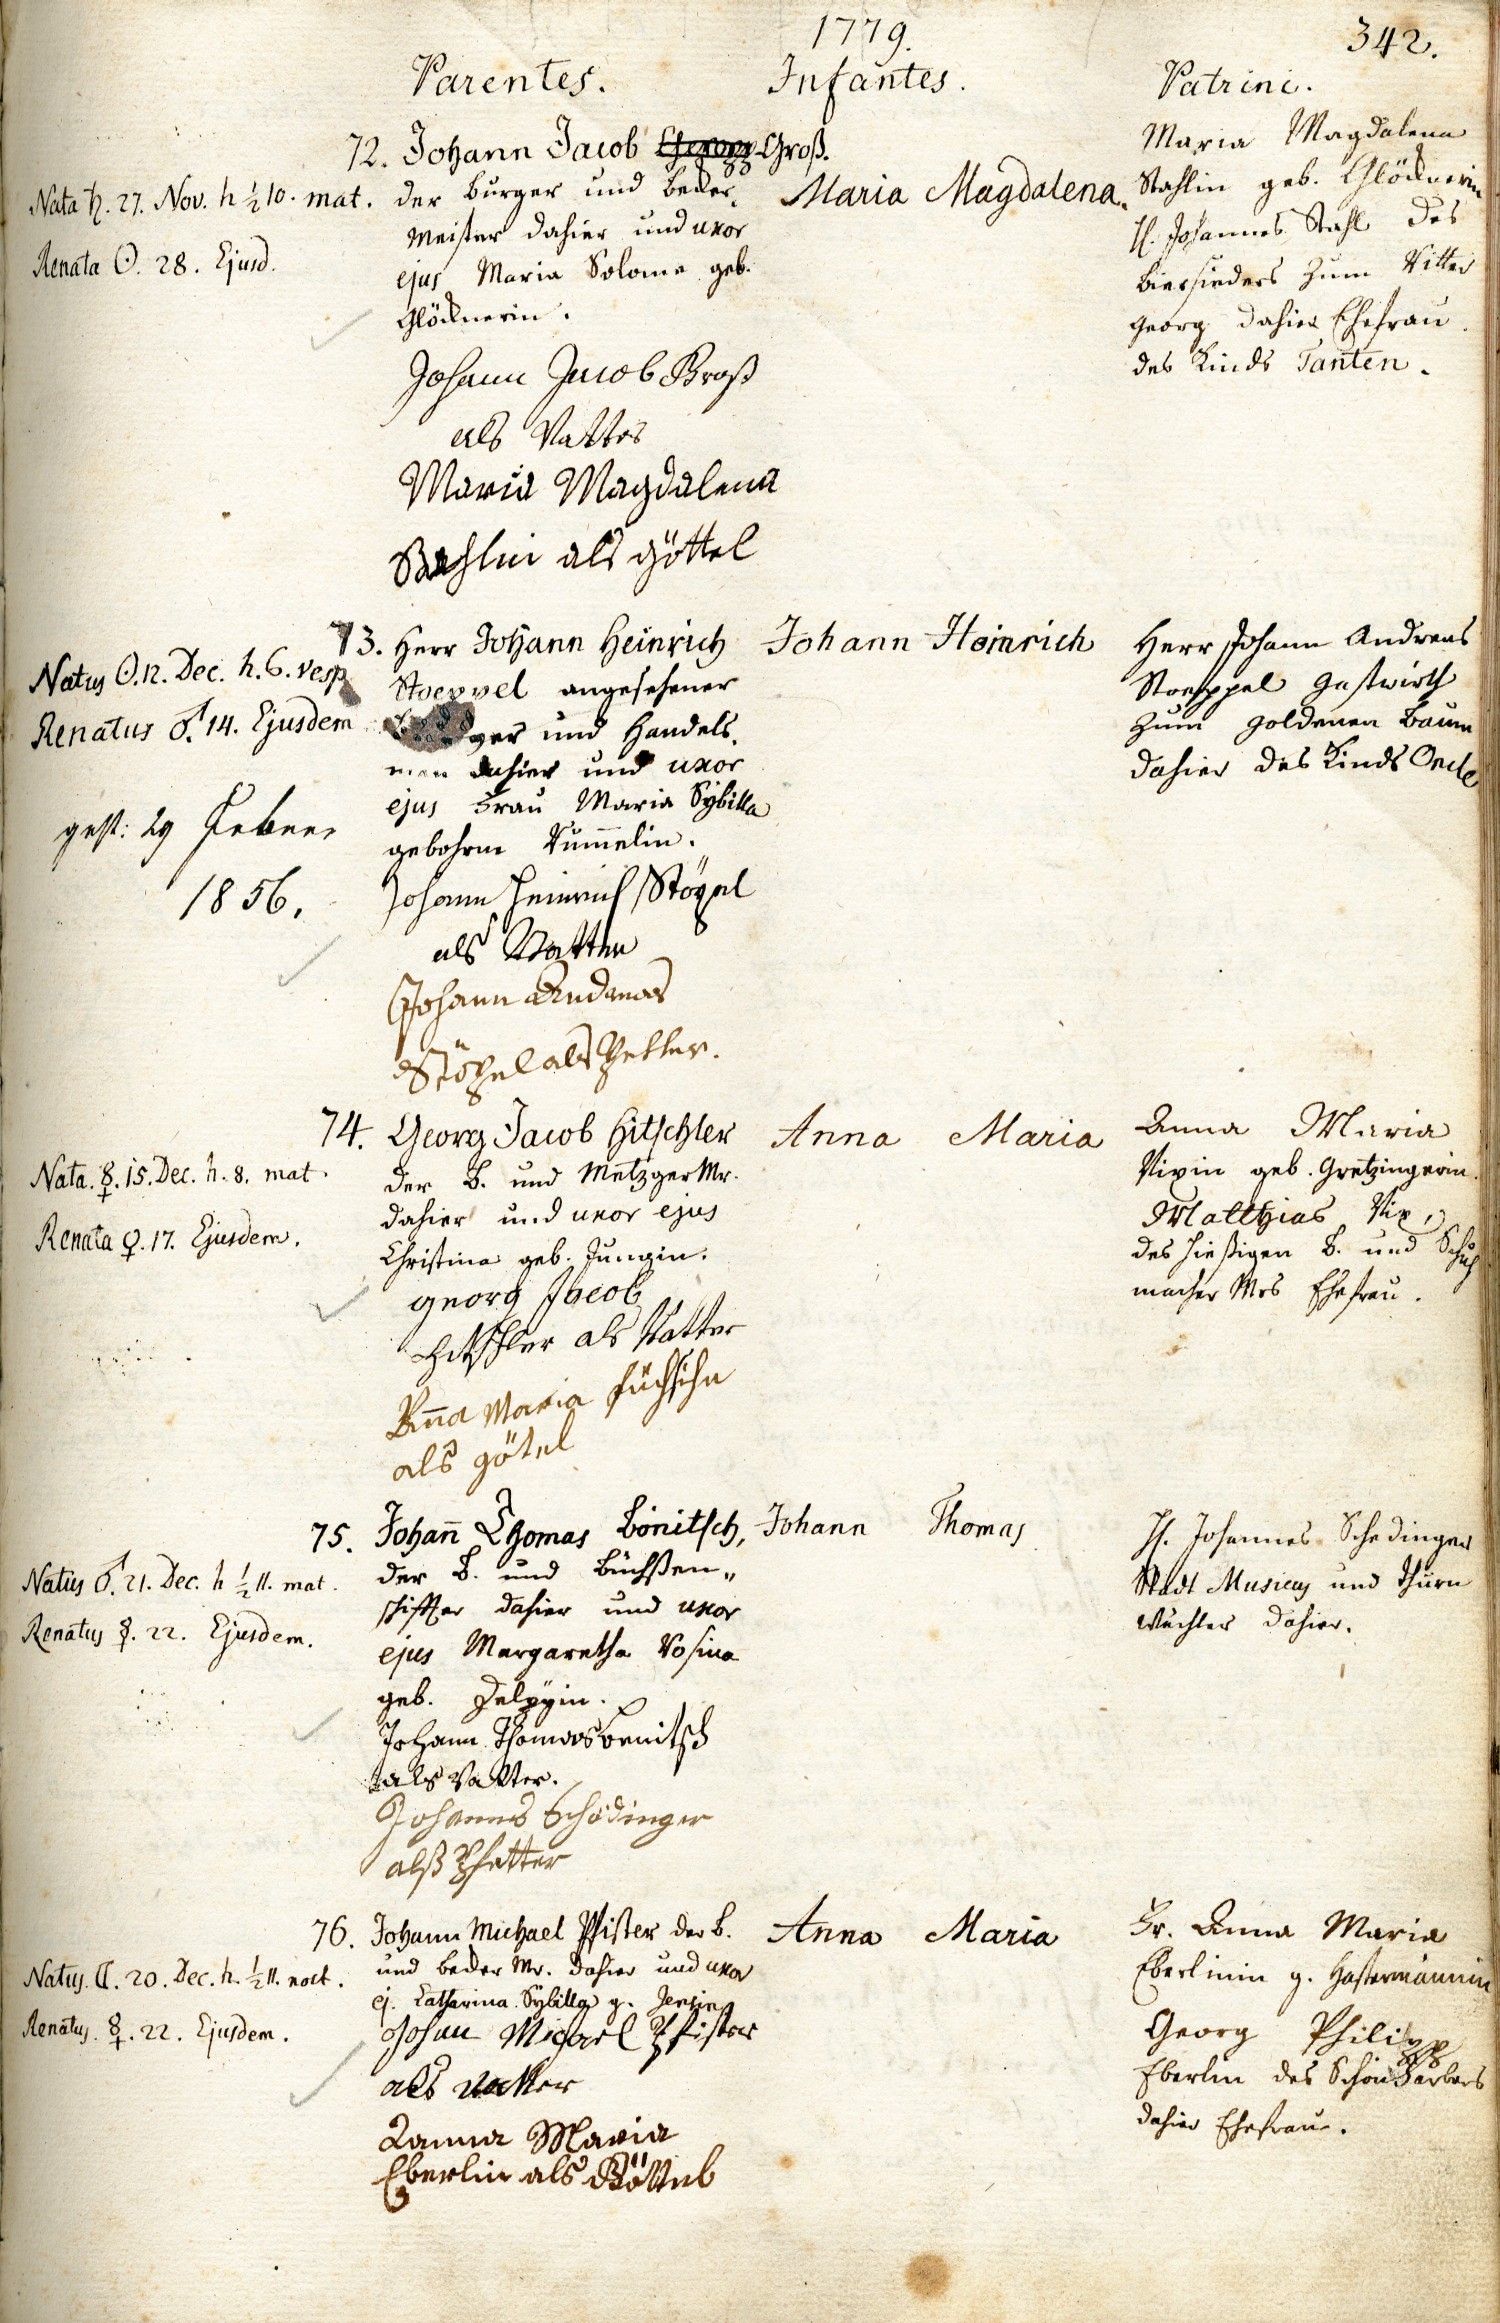 1779.
342.
Parentes. Infantes. Patrini.
72. Johann Jacob Groß.
Nata ♄. 27. Nov. h ½10. mat.
Renata ☉. 28. Ejusd.
der burger und becker-
meister dahier und uxor
ejus Maria Salome geb.
Glöcknerin.
Johann Jacob Groß
als Vatter
Maria Magdalena
Stahlin als göttel
Maria Magdalena.
Maria Magdalena
Stahlin geb. Glöcknerin
H. Johannes Stahl des
biersieders zum Ritter
Georg dahier Ehefrau
des Kinds Tanten.
73. Herr Johann Heinrich
Natus ☉. 12. Dec. h. 6. vesp
Renatus ♂. 14. Ejusdem
gest: 29 Febr
1856.
Stoeppel angesehener
und Handels-
man dahier und uxor
ejus Frau Maria Sybilla
gebohrne Rum̄elin.
Johann Heinrich Stöpel
als Vatter
Johann Andreas
Stöpel als Petter.
Johann Heinrich
Herr Johann Andreas
Stoeppel gastwirth
zum goldenen baum
dahier des Kinds Oncle
74. Georg Jacob Hitschler
Nata. ☿. 15. Dec. h. 8. mat.
Renata ♀. 17. Ejusdem.
der B. und Metzger Mr.
dahier und uxor ejus
Christina geb. Jungin.
georg Jacob
Hitschler als Vatter
Anna Maria füchsihn
als götel
Anna Maria
Anna Maria
Vixin geb. Gretzingerin.
Matthias Vix,
des hießigen B. und Schuh
macher Mrs Ehefrau.
75. Johan̄ Thomas Bönitsch,
Natus ♂. 21. Dec. h ½11. mat.
Renatus ☿. 22. Ejusdem.
der B. und büchßen„
schiffter dahier und uxor
ejus Margaretha Rosina
geb. Delpyin.
Johann Thomas Benitsch
als Vatter.
Johannes Schödinger
alß Pfetter
Johann Thomas
H. Johannes Schedinger
Stadt Musicus und Thurn
wächter dahier.
76. Johann Michael Pfister der B.
Natus. ☾. 20. Dec. h. ½11. noct.
Renatus. ☿. 22. Ejusdem.
und becker Mr. dahier und uxor
ej. Catharina Sybilla g.
Johan Michael Pfister
als vatter
Anna Maria
Eberlin als Göttel
Anna Maria
Fr. Anna Maria
Eberlinin g. Hastermännin
Georg Philipp
Eberlin des Schönfärbers
dahier Ehefrau.